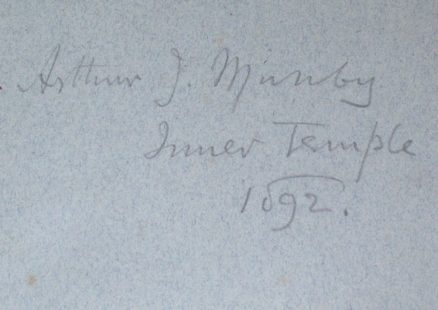 Arthur J. Munby
Inner Temple
1892.